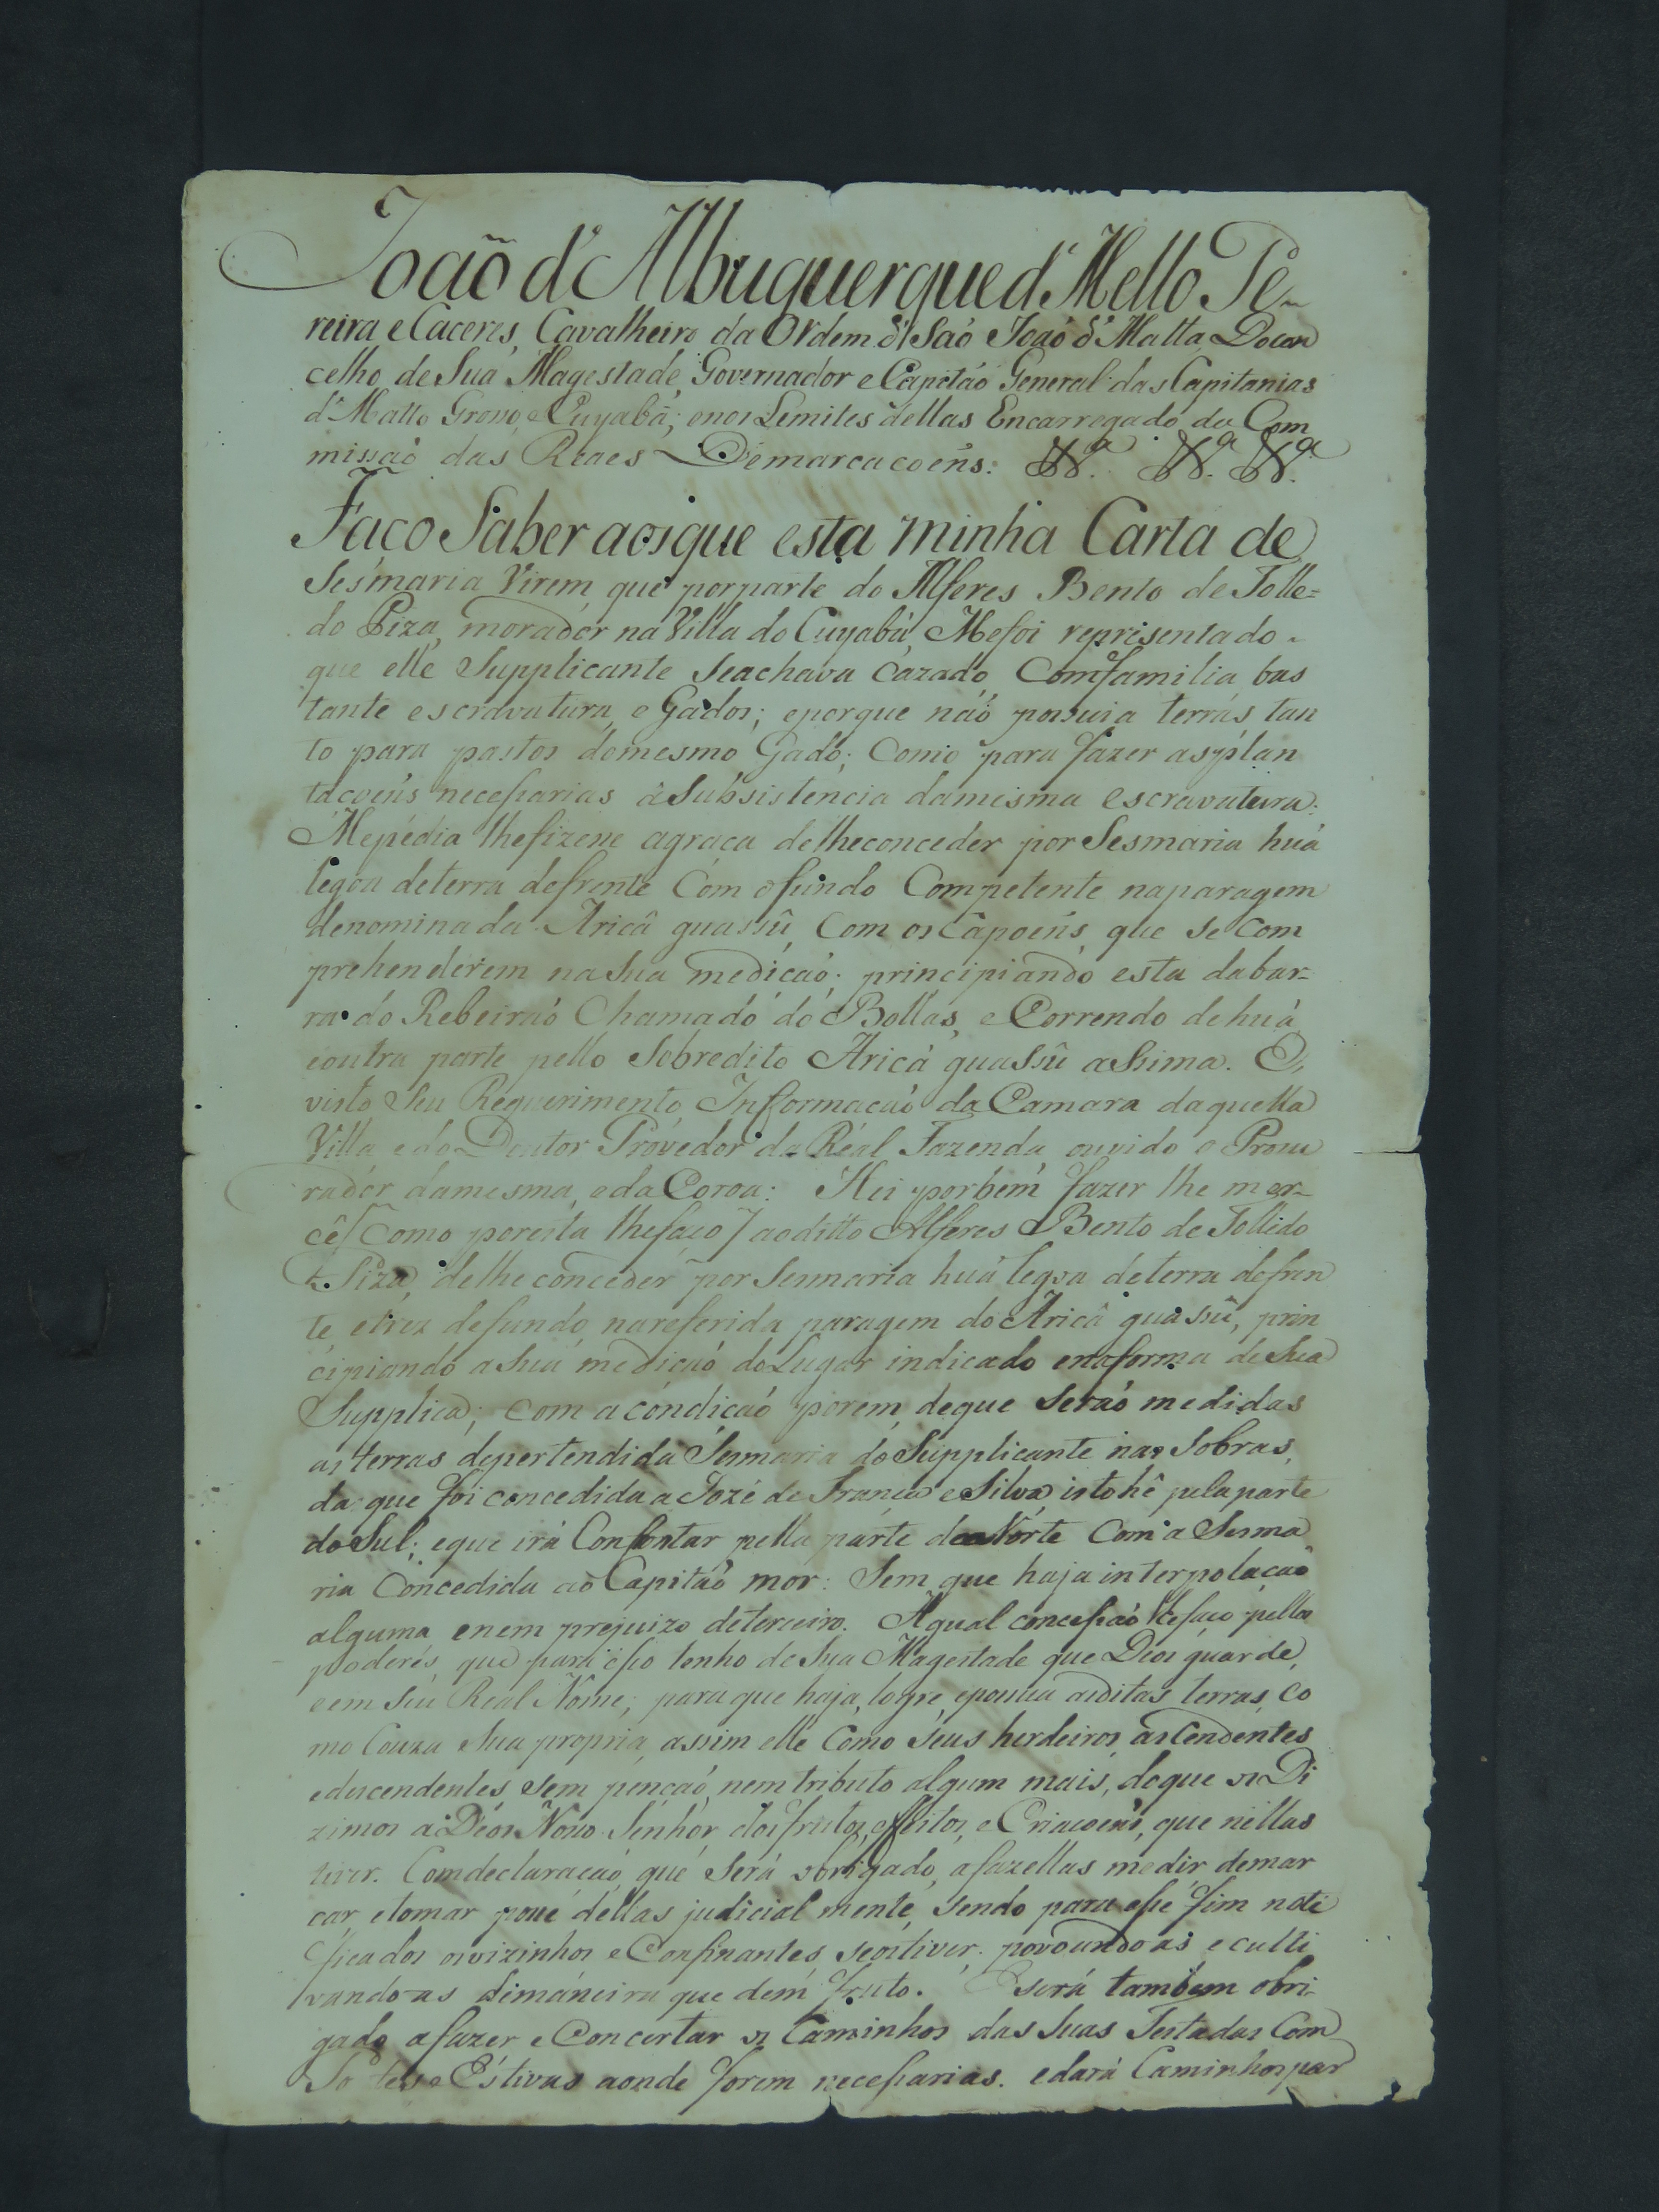 João d'Albuquerque d'Mello Pe-
reira e Caceres, Cavalheiro da Ordem d' Saó Joaó d' Malta Docon
celho de Sua Magestade, Governador e Capitáo General das Capitanias
d' Matto Groso, e Cuyabá; enos Lemites dellas Encarregado da Com
missaó das Reaes Demarcacoens. &ª. &ª. &ª.
Faço Saber aos que esta minha Carta de
Sesmaria Virem, que porparte do Alferes Bento de Tolle=
do Piza, morador na Villa do Cuyabá, Mefoi representado
que elle Supplicante Seachava Cazado, Comfamilia bas
tante escravatura, e Gados; eporque náo possuia terras tan
to para pastos domesmo Gado; Como para fazer asplan
tacoens necessarias áSubsistencia damesma escravatura:
Mepédia lhefizesse agraca delheconceder por Sesmaria huá
legoa deterra defrente Com ofundo Competente naparagem
denominada Aricâ guassû, Com os Capoens, que se Com
prehenderem naSua medicaó; principiando esta dabar-
ra do Rebeiraó Chamado do Bollas, e Correndo dehuá
eoutra parte pello Sobredito Aricá guassû assima. E,
visto Seu Requerimento, Informacaó da Camara daquella
Villa edo Doutor Próvedor da Réal Fazenda ouvido o Procu
rador damesma, eda Coroa: Hei porbem fazer lhe mer-
cê [Como poresta lhefaco] aoditto Alferes Bento de Tolledo
Piza, delheconceder por Sesmaria huá legoa deterra defren
te etrez defundo, nareferida paragem do Aricâ guassû, prin
cipiando aSua medicaó doLugar indicado enaforma deSua
Supplica; Com acondicaó porem, deque seraó medidas
as terras depertendida Sesmaria doSupplicante nas Sobras,
da que foi concedida a Jozé de Franca e Silva, istohê pelaparte
doSul; eque irá Confrontar pella parte do Norte Com a Sesma
ria Concedida ao Capitaó mor: Sem que haja interpolaçaó
alguma, enem prejuizo deterceiro. Aqual concessaó lhefaco pellos
poderes, que para isso tenho de Sua Magestade que Deos guarde,
eem Seu Real Nome; para que haja, logre, epossua asditas terras, co
mo Couza Sua propria, assim elle Como Seus herdeiros, ascendentes
edescendentes, Sem pencaó, nem tributo algum mais, doque os Di
zimos a Déos Nosso Senhor dosfrutos, effeitos, e Criacoens, que nellas
tiver. Comdeclaracaó, que Será obrigado, afazellas medir demar
car, etomar posse dellas judicial mente, Sendo para esse fim noti
ficados osvizinhos e Confinantes, seostiver; povoando as, eculti
vando-as dimaneira que dem fruto. Será tambem obri-
gado afazer e Concertar os Caminhos das Suas Testadas Com
Pontes e Estivas aonde forem necessarias. edará Caminhospar